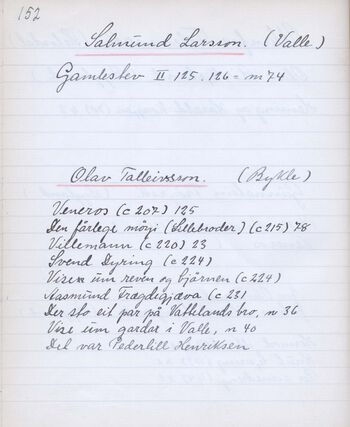 152
Salmund Larsson. (Valle)
Gamlestev II 125. 126 = m 74
Olav Talleivsson. (Bykle)
Veneros (c 207) 125
Den farlege möyi (Lillebroder) (c 215) 78
Villemann (c 220) 23
Svend Dyring (c 224)
Vise um reven og björnen (c 224)
Aasmund Frægdegjæva (c 231
Der sto eit par på Vattilands bro, n 36
Vise um gardar i Valle, n 40
Del var Pederlill Henriksen